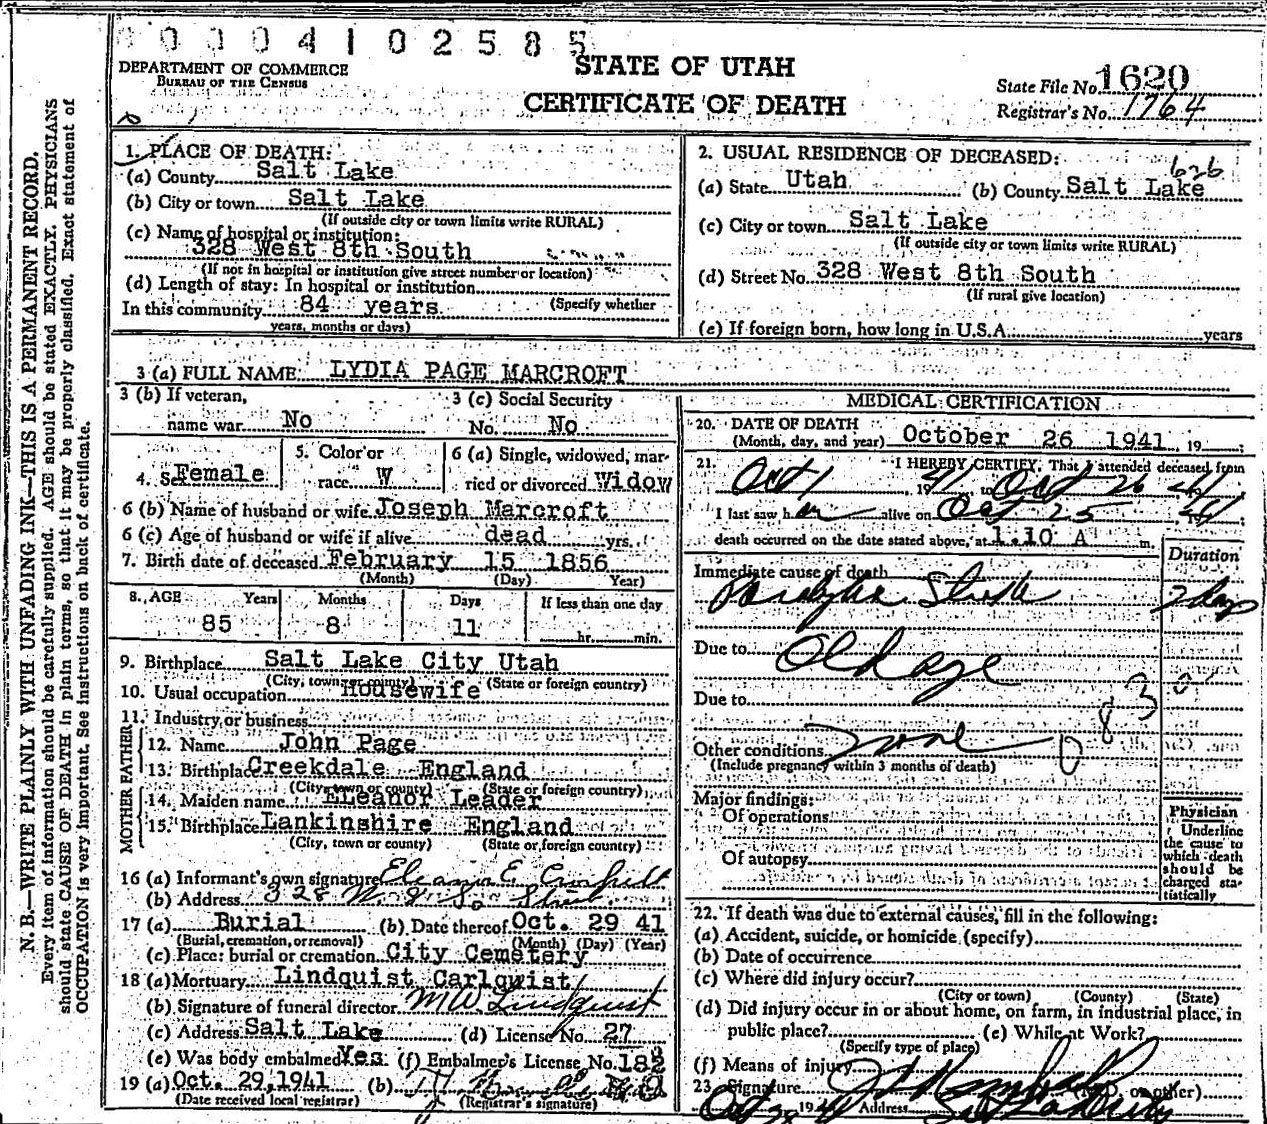 0 0 0 0 4 1 0 2 5 8 5
DEPARTMENT OF COMMERCE
BUREAU OF THE CENSUS
STATE OF UTAH
CERTIFICATE OF DEATH
State File No. 1620
Registrar's No. 1764
N. B.—WRITE PLAINLY WITH UNFADING INK—THIS IS A PERMANENT RECORD.
Every item of information should be carefully supplied. AGE should be stated EXACTLY. PHYSICIANS
should state CAUSE OF DEATH in plain terms, so that it may be properly classified. Exact statement of
OCCUPATION is very important. See instructions on back of certificate.
1. PLACE OF DEATH:
(a) County Salt Lake
(b) City or town Salt Lake
(If outside city or town limits write RURAL)
(c) Name of hospital or institution:
328 West 8th South
(If not in hospital or institution give street number or location)
(d) Length of stay: In hospital or institution
(Specify whether
In this community 84 years
years, months or days)
2. USUAL RESIDENCE OF DECEASED:
626
(a) State Utah (b) County Salt Lake
(c) City or town Salt Lake
(If outside city or town limits write RURAL)
(d) Street No. 328 West 8th South
(If rural give location)
(e) If foreign born, how long in U.S.A. years
3 (a) FULL NAME: LYDIA PAGE MARCROFT
3 (b) If veteran,
name war No
3 (c) Social Security
No. No
4. Sex Female
5. Color or
race W
6 (a) Single, widowed, mar-
ried or divorced Widow
6 (b) Name of husband or wife Joseph Marcroft
6 (c) Age of husband or wife if alive dead yrs.
7. Birth date of deceased February 15 1856
(Month) (Day) Year)
8. AGE Years Months Days If less than one day
85 8 11 hr. min.
9. Birthplace Salt Lake City Utah
(City, town or county) (State or foreign country)
10. Usual occupation Housewife
11. Industry or business
FATHER
12. Name John Page
13. Birthplace Creekdale England
(City, town or county) (State or foreign country)
MOTHER
14. Maiden name Eleanor Leader
15. Birthplace Lankinshire England
(City, town or county) (State or foreign country)
16 (a) Informant's own signature Eleanor E.
(b) Address 328 W. 8 So
17 (a) Burial (b) Date thereof Oct. 29 41
(Burial, cremation, or removal) (Month) (Day) (Year)
(c) Place: burial or cremation City Cemetery
18 (a) Mortuary Lindquist Carlquist
(b) Signature of funeral director M W Lindquist
(c) Address Salt Lake (d) License No. 27
(e) Was body embalmed Yes (f) Embalmer's License No. 182
19 (a) Oct. 29, 1941 (b)
(Date received local registrar) (Registrar's signature)
MEDICAL CERTIFICATION
20. DATE OF DEATH
(Month, day, and year) October 26 1941 19
21. I HEREBY CERTIFY, That I attended deceased from
Oct 1 1941 to Oct 26 1941
I last saw her alive on Oct 25 1941
death occurred on the date stated above, at 1.10 A m.
Duration
Immediate cause of death
Paralytic Stroke 2 days
Due to Old age
Due to
83 0
Other conditions none
(Include pregnancy within 3 months of death)
Major findings:
Of operations
Of autopsy
Physician
Underline
the cause to
which death
should be
charged sta-
tistically
22. If death was due to external causes, fill in the following:
(a) Accident, suicide, or homicide (specify)
(b) Date of occurrence
(c) Where did injury occur?
(City or town) (County) (State)
(d) Did injury occur in or about home, on farm, in industrial place, in
public place? (e) While at Work?
(Specify type of place)
(f) Means of injury
23. Signature (M.D. or other)
Oct 28 1941 Address